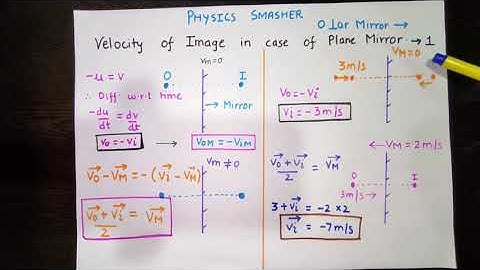 PHYSICS SMASHER
⊥ar Mirror →
Velocity of Image in case of Plane Mirror → 1
-u = v
∴ Diff w.r.t time
-du/dt = dv/dt
Vo = -Vi
Vm=0
O I
→ Mirror
→ VOM = -ViM
Vo - VM = -(Vi - VM)
(Vo + Vi)/2 = VM
Vm ≠ 0
VM=0
3m/s
Vo = -Vi
Vi = -3m/s
(Vo + Vi)/2 = VM
← VM = 2m/s
O I
3m/s →
3 + Vi = -2 × 2
Vi = -7m/s